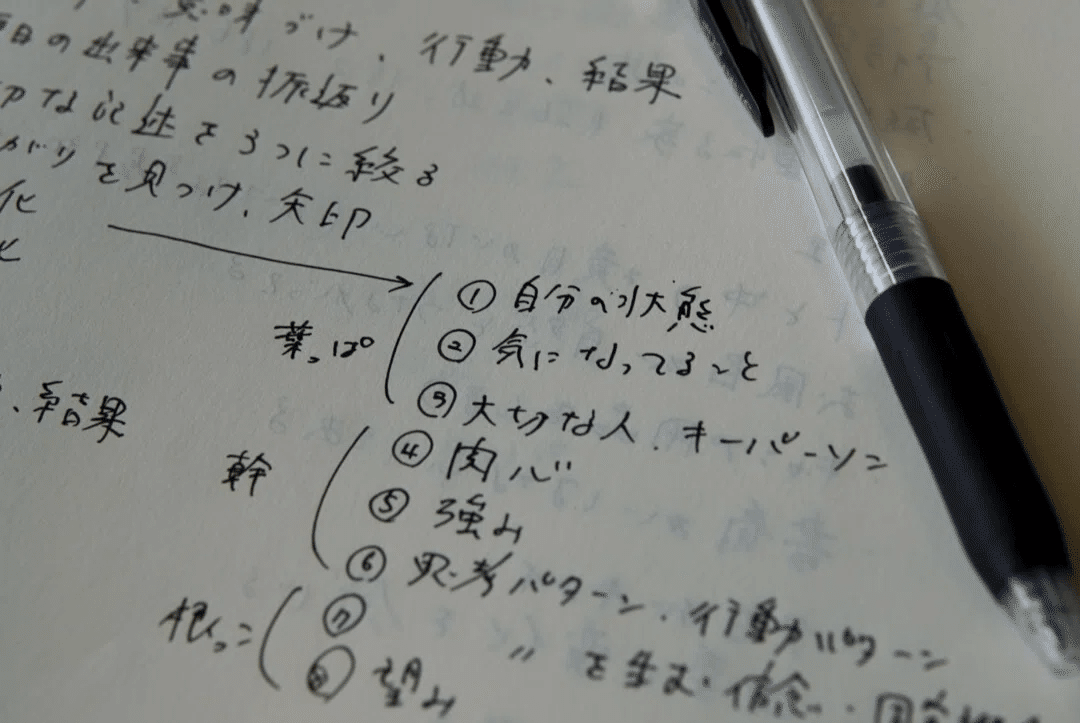 味づけ、行動、結果
毎日の出来事の振返り
切な記述を3つに絞る
がりを見つけ、矢印
化
化
葉っぱ
① 自分の状態
② 気になってること
③ 大切な人、キーパーソン
、結果
幹
④ 関心
⑤ 強み
⑥ 思考パターン、行動パターン
根っこ
⑦ 〃 を生む信念・
⑧ 望み